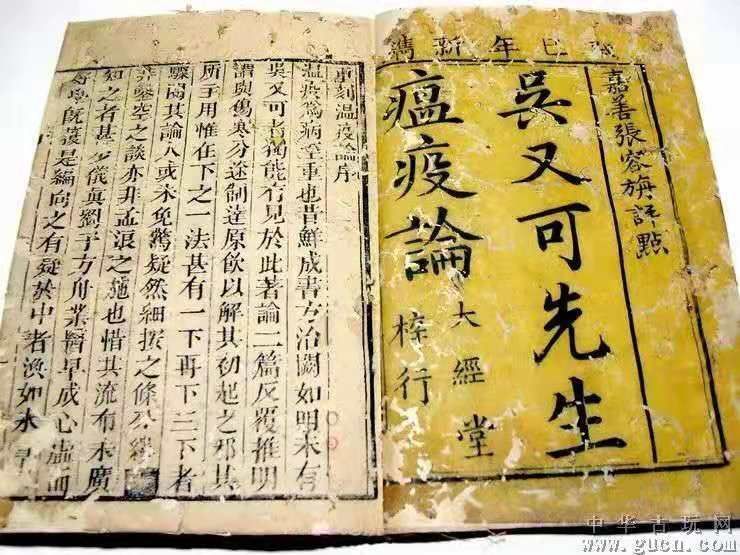 巳年新鐫
嘉善張容旃註點
吳又可先生
瘟疫論
大經堂
梓行
刻温疫論序
温疫爲病至重也昔鮮成書方治闕如明末有
吳又可者獨能有見於此著論二篇反覆推明
謂與傷寒分途制達原飲以解其初起之邪其
所主用惟在下之一法甚有一下再下三下者
驟閱其論人或未免驚疑然細按之條分縷
非鑿空之談亦非孟浪之施也惜其流布未廣
知之者甚少儀真劉子方舟業醫早成心虛而
好學既獲是編向之有疑於中者渙如冰
中华古玩网
www.gucn.com